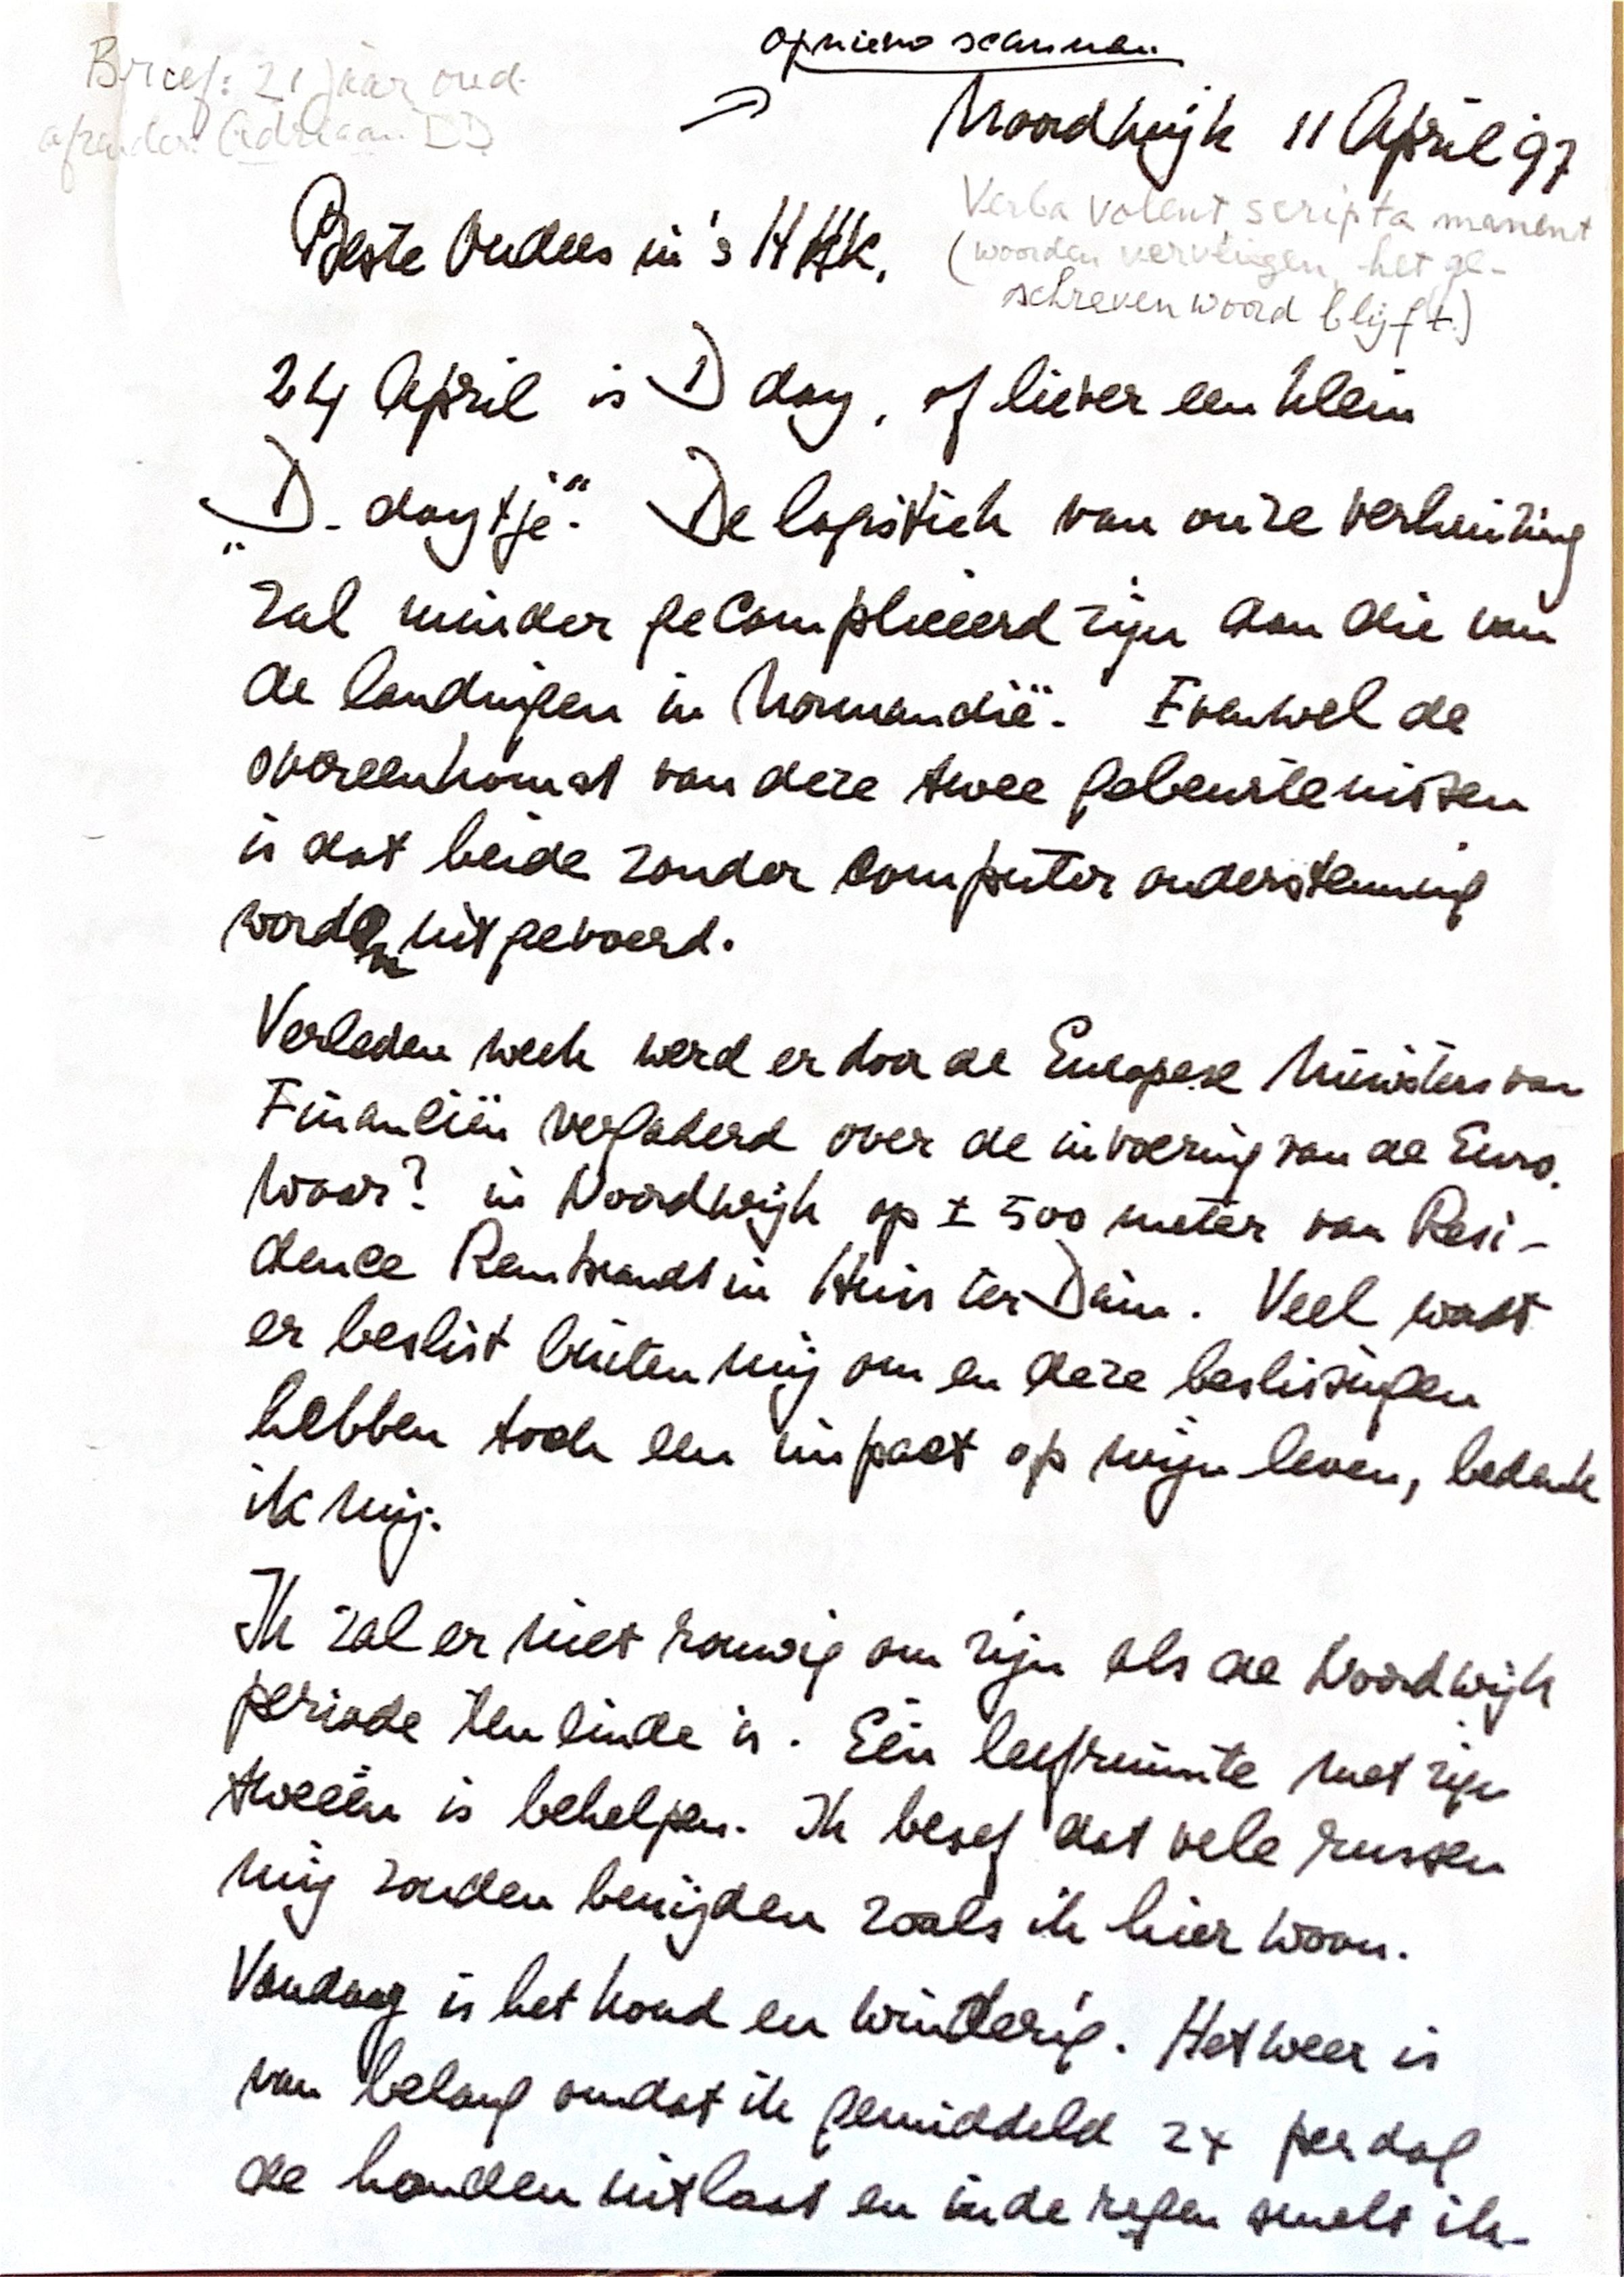 opnieuw scannen
Brief: 21 jaar oud
afzender: Adriaan DD
Noordwijk 11 April 97
Verba volent, scripta manent
(woorden vervliegen, het ge-
schreven woord blijft.)
Beste Ouders in 's HHK,
24 April is D day, of liever een klein
„D-daytje". De logistiek van onze verhuizing
zal minder gecompliceerd zijn dan die van
de landingen in Normandië. Evenwel de
overeenkomst van deze twee gebeurtenissen
is dat beide zonder computer ondersteuning
worden uitgevoerd.
Verleden week werd er door de Europese Ministers van
Financiën vergaderd over de invoering van de Euro.
Waar? in Noordwijk op ± 500 meter van Resi-
dence Rembrandt in Huis ter Duin. Veel wordt
er beslist buiten mij om en deze beslissingen
hebben toch een impact op mijn leven, bedenk
ik mij.
Ik zal er niet rouwig om zijn als de Noordwijk
periode ten einde is. Eén leefruimte met zijn
tweeën is behelpen. Ik besef dat vele russen
mij zouden benijden zoals ik hier woon.
Vandaag is het koud en winderig. Het weer is
van belang omdat ik gemiddeld 2x per dag
de honden uitlaat en in de regen smelt ik